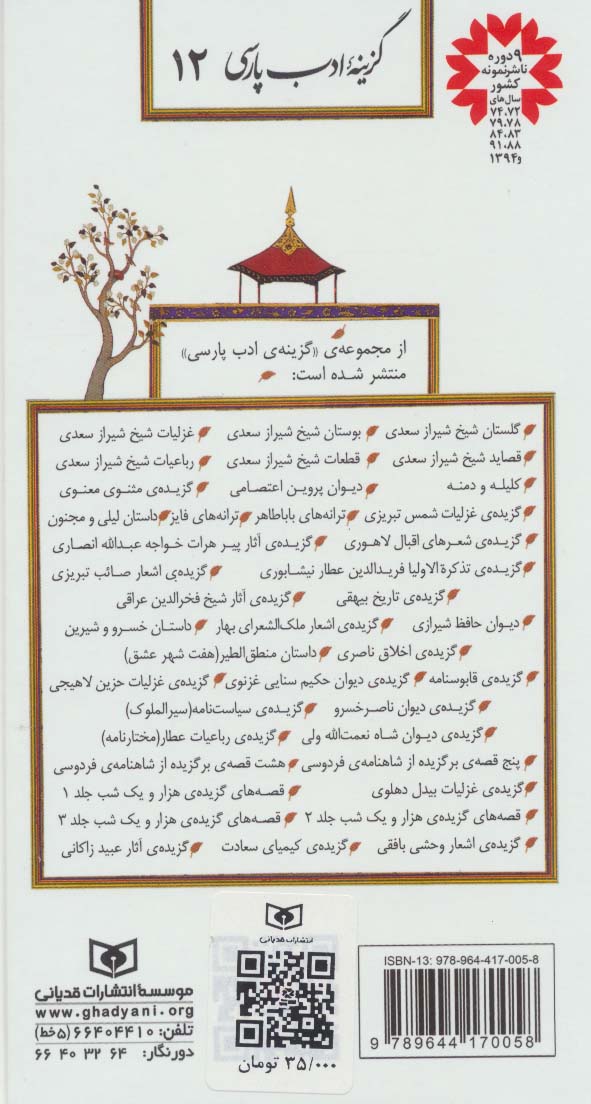 ۹ دوره
ناشر نمونه
کشور
سال‌های
۷۴،۷۲
۷۹،۷۸
۸۴،۸۳
۹۱،۸۸
و۱۳۹۴
گزینهٔ ادب پارسی ۱۲
از مجموعه‌ی «گزینه‌ی ادب پارسی»
منتشر شده است:
گلستان شیخ شیراز سعدی بوستان شیخ شیراز سعدی غزلیات شیخ شیراز سعدی
قصاید شیخ شیراز سعدی قطعات شیخ شیراز سعدی رباعیات شیخ شیراز سعدی
کلیله و دمنه دیوان پروین اعتصامی گزیده‌ی مثنوی معنوی
گزیده‌ی غزلیات شمس تبریزی ترانه‌های باباطاهر ترانه‌های فایز داستان لیلی و مجنون
گزیده‌ی شعرهای اقبال لاهوری گزیده‌ی آثار پیر هرات خواجه عبدالله انصاری
گزیده‌ی تذکرة الاولیا فریدالدین عطار نیشابوری گزیده‌ی اشعار صائب تبریزی
گزیده‌ی تاریخ بیهقی گزیده‌ی آثار شیخ فخرالدین عراقی
دیوان حافظ شیرازی گزیده‌ی اشعار ملک‌الشعرای بهار داستان خسرو و شیرین
گزیده‌ی اخلاق ناصری داستان منطق‌الطیر(هفت شهر عشق)
گزیده‌ی قابوسنامه گزیده‌ی دیوان حکیم سنایی غزنوی گزیده‌ی غزلیات حزین لاهیجی
گزیده‌ی دیوان ناصرخسرو گزیده‌ی سیاست‌نامه(سیرالملوک)
گزیده‌ی دیوان شاه نعمت‌الله ولی گزیده‌ی رباعیات عطار(مختارنامه)
پنج قصه‌ی برگزیده از شاهنامه‌ی فردوسی هشت قصه‌ی برگزیده از شاهنامه‌ی فردوسی
گزیده‌ی غزلیات بیدل دهلوی قصه‌های گزیده‌ی هزار و یک شب جلد ۱
قصه‌های گزیده‌ی هزار و یک شب جلد ۲ قصه‌های گزیده‌ی هزار و یک شب جلد ۳
گزیده‌ی اشعار وحشی بافقی گزیده‌ی کیمیای سعادت گزیده‌ی آثار عبید زاکانی
ISBN-13: 978-964-417-005-8
9 789644 170058
انتشارات قدیانی
۳۵/۰۰۰ تومان
موسسهٔ انتشارات قدیانی
www.ghadyani.org
تلفن: ۶۶۴۰۴۴۱۰ (۵خط)
دورنگار: ۶۶ ۴۰ ۳۲ ۶۴